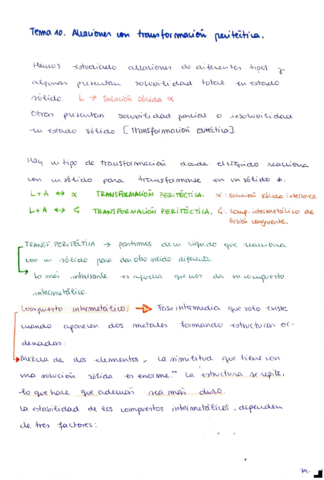 Tema 10. Aleaciones con transformación peritéctica.
Hemos estudiado aleaciones de diferentes tipos y
algunas presentan solubilidad total en estado
sólido. L → Solución sólida α
Otras presentan solubilidad parcial o insolubilidad
en estado sólido [Transformación eutéctica].
Hay un tipo de transformación donde el líquido reacciona
con un sólido para transformarse en un sólido
L + A ↔ α TRANSFORMACIÓN PERITÉCTICA. α: solución sólida
L + A ↔ TRANSFORMACIÓN PERITÉCTICA. comp. intermetálico de
fusión congruente.
TRANSF. PERITÉCTICA → partimos de un líquido que reacciona
con un sólido para dar otro sólido diferente.
↳ Lo más interesante es aquella que nos da un compuesto
intermetálico.
Compuesto intermetálico: → Fase intermedia que solo existe
cuando aparecen dos metales formando estructuras or-
denadas.
Mezcla de dos elementos, la similitud que tiene con
una solución sólida es enorme. La estructura se repite,
lo que hace que además sea más duro.
La estabilidad de los compuestos intermetálicos, dependen
de tres factores: